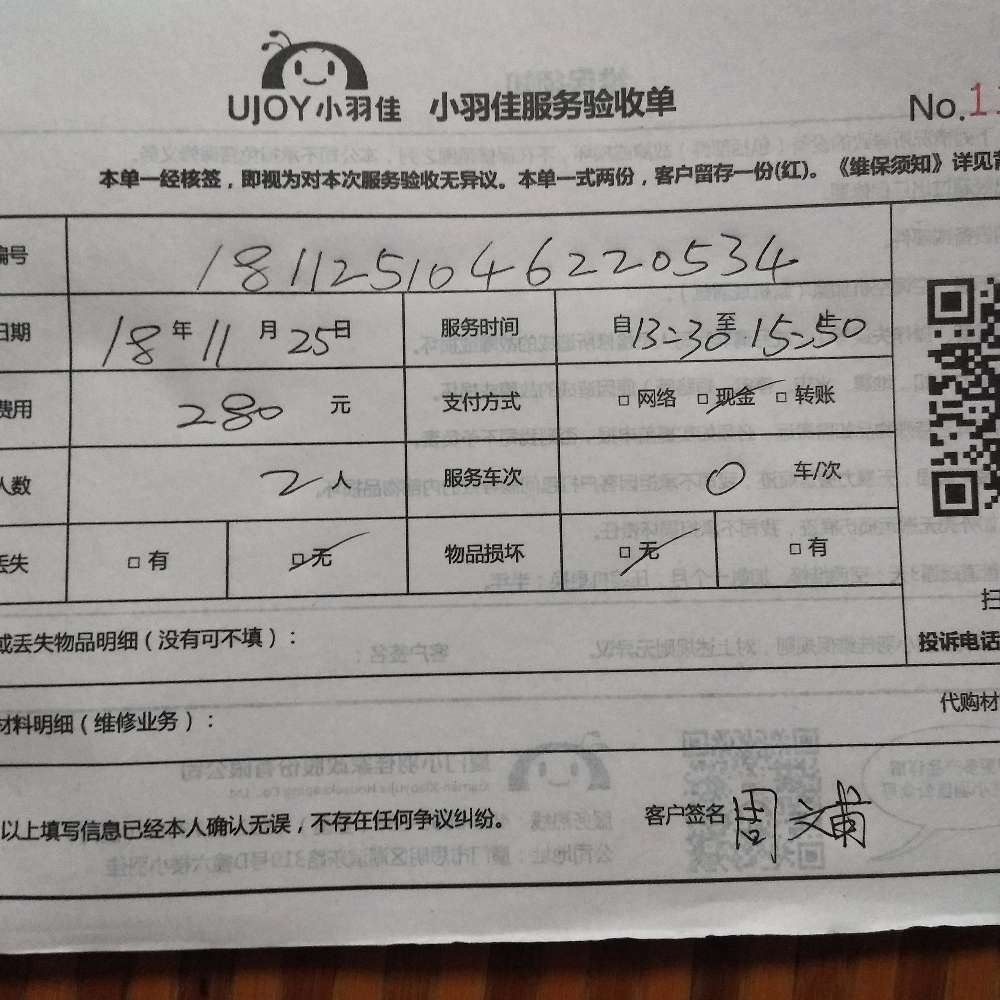 UJOY小羽佳 小羽佳服务验收单 No.1
本单一经核签，即视为对本次服务验收无异议。本单一式两份，客户留存一份(红)。《维保须知》详见背
编号 1811251046220534
日期 18年11月25日 服务时间 自13:30至15:50止
费用 280 元 支付方式 □ 网络 □ 现金 □ 转账
人数 2人 服务车次 0 车/次
丢失 □ 有 □ 无 物品损坏 □ 无 □ 有
扫
或丢失物品明细（没有可不填）： 投诉电话
材料明细（维修业务）： 代购材
以上填写信息已经本人确认无误，不存在任何争议纠纷。 客户签名 周文甫